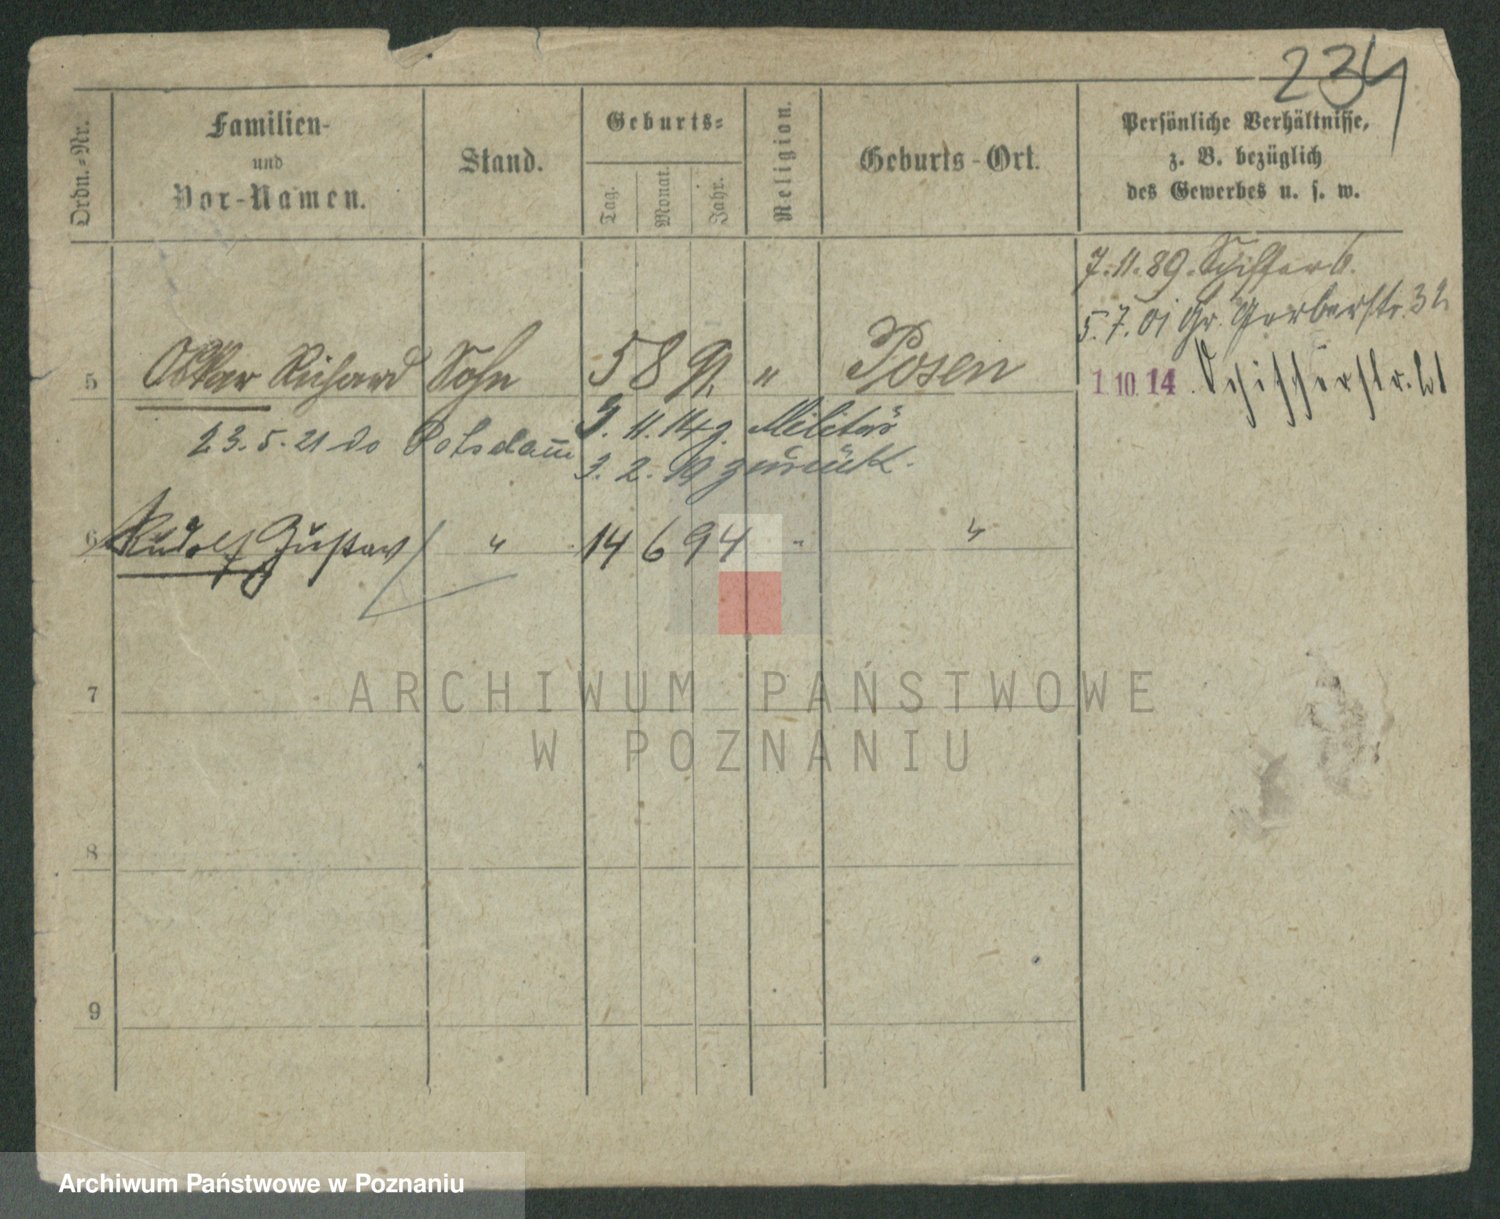 234
Ordn.-Nr.
Familien-
und
Vor-Namen.
Stand.
Geburts-
Tag.
Monat.
Jahr.
Religion.
Geburts-Ort.
Persönliche Verhältnisse,
z. B. bezüglich
des Gewerbes u. s. w.
7.11.89.
5.7.01 Gr. Gerberstr. 32
5 Oskar Richard Sohn 5 8 91 " Posen
1.10.14. Schifferstr.
23.5.21 do Potsdam 3.11.14 g. Militär
3.2.19 zurück.
6 Rudolf Gustav " 14 6 94 " "
7
8
9
ARCHIWUM PAŃSTWOWE
W POZNANIU
Archiwum Państwowe w Poznaniu